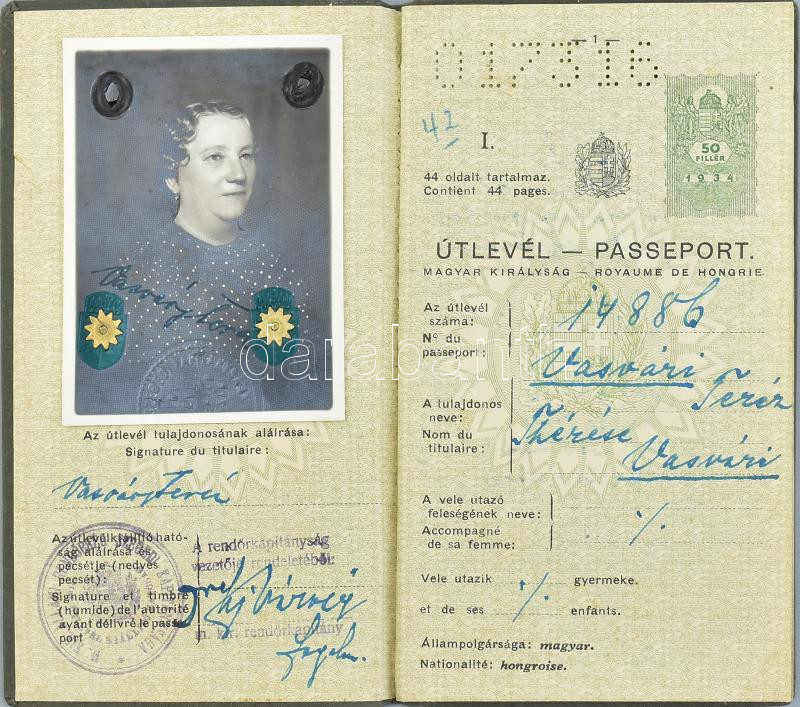 Vasvári Teréz
Az útlevél tulajdonosának aláírása:
Signature du titulaire:
Vasvári Teréz
Az útlevélkiállító ható-
ság aláírása és
pecsétje (nedves
pecsét):
Signature et timbre
(humide) de l'autorité
ayant délivré le passe-
port
A rendőrkapitányság
vezetője rendeletéből:
m. kir. rendőrkapitány
017316
1
42
I.
44 oldalt tartalmaz.
Contient 44 pages.
50
FILLÉR
1934
ÚTLEVÉL — PASSEPORT.
MAGYAR KIRÁLYSÁG — ROYAUME DE HONGRIE
Az útlevél
száma:
N° du
passeport:
14886
A tulajdonos
neve:
Nom du
titulaire:
Vasvári
Teréz
Thérèse
Vasvári
A vele utazó
feleségének neve:
Accompagné
de sa femme:
./.
Vele utazik ./. gyermeke.
et de ses enfants.
Állampolgársága: magyar.
Nationalité: hongroise.
darabanth